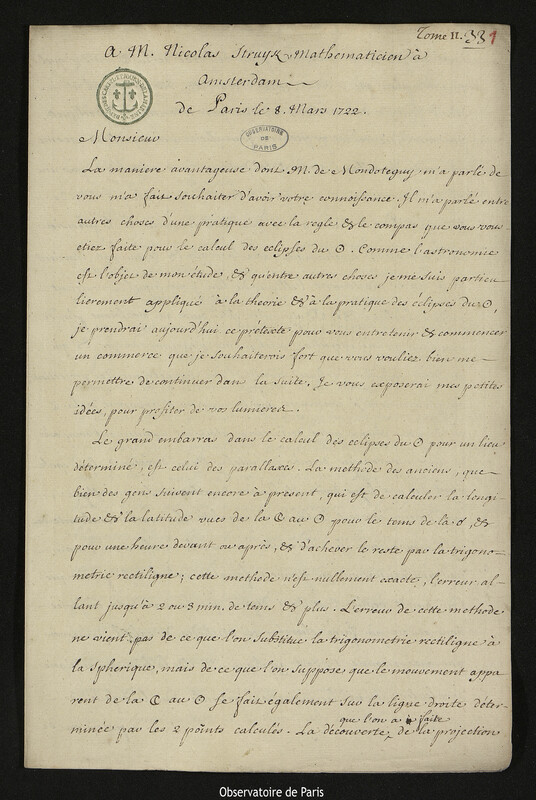 Tome II. 33 1
A M. Nicolas Struyk Mathematicien à
Amsterdam
de Paris le 8. Mars 1722.
OBSERVATOIRE DE PARIS
Monsieur
La maniere avantageuse dont M. de Mondoteguy m'a parlé de
vous m'a fait souhaiter d'avoir votre connoissance. Il m'a parlé entre
autres choses d'une pratique avec la regle & le compas que vous vous
etiez faite pour le calcul des eclipses du ☉. Comme l'astronomie
est l'objet de mon étude, & qu'entre autres choses je me suis particu
lierement appliqué à la theorie & à la pratique des eclipses du ☉,
je prendrai aujourd'hui ce prétexte pour vous entretenir & commencer
un commerce que je souhaiterois fort que vous vouliez bien me
permettre de continuer dans la suite. Je vous exposerai mes petites
idées, pour profiter de vos lumieres.
Le grand embarras dans le calcul des eclipses du ☉ pour un lieu
déterminé, est celui des parallaxes. La methode des anciens, que
bien des gens suivent encore à present, qui est de calculer la longi
tude & la latitude vues de la ☾ au ☉ pour le tems de la ☌, &
pour une heure devant ou après, & d'achever le reste par la trigono
metrie rectiligne; cette methode n'est nullement exacte, l'erreur al
lant jusqu'à 2 ou 3 min. de tems & plus. L'erreur de cette methode
ne vient pas de ce que l'on substitue la trigonometrie rectiligne à
la spherique, mais de ce que l'on suppose que le mouvement appa
rent de la ☾ au ☉ se fait également sur la ligne droite déter
minée par les 2 points calculés. La découverte que l'on a faite de la projection
Observatoire de Paris